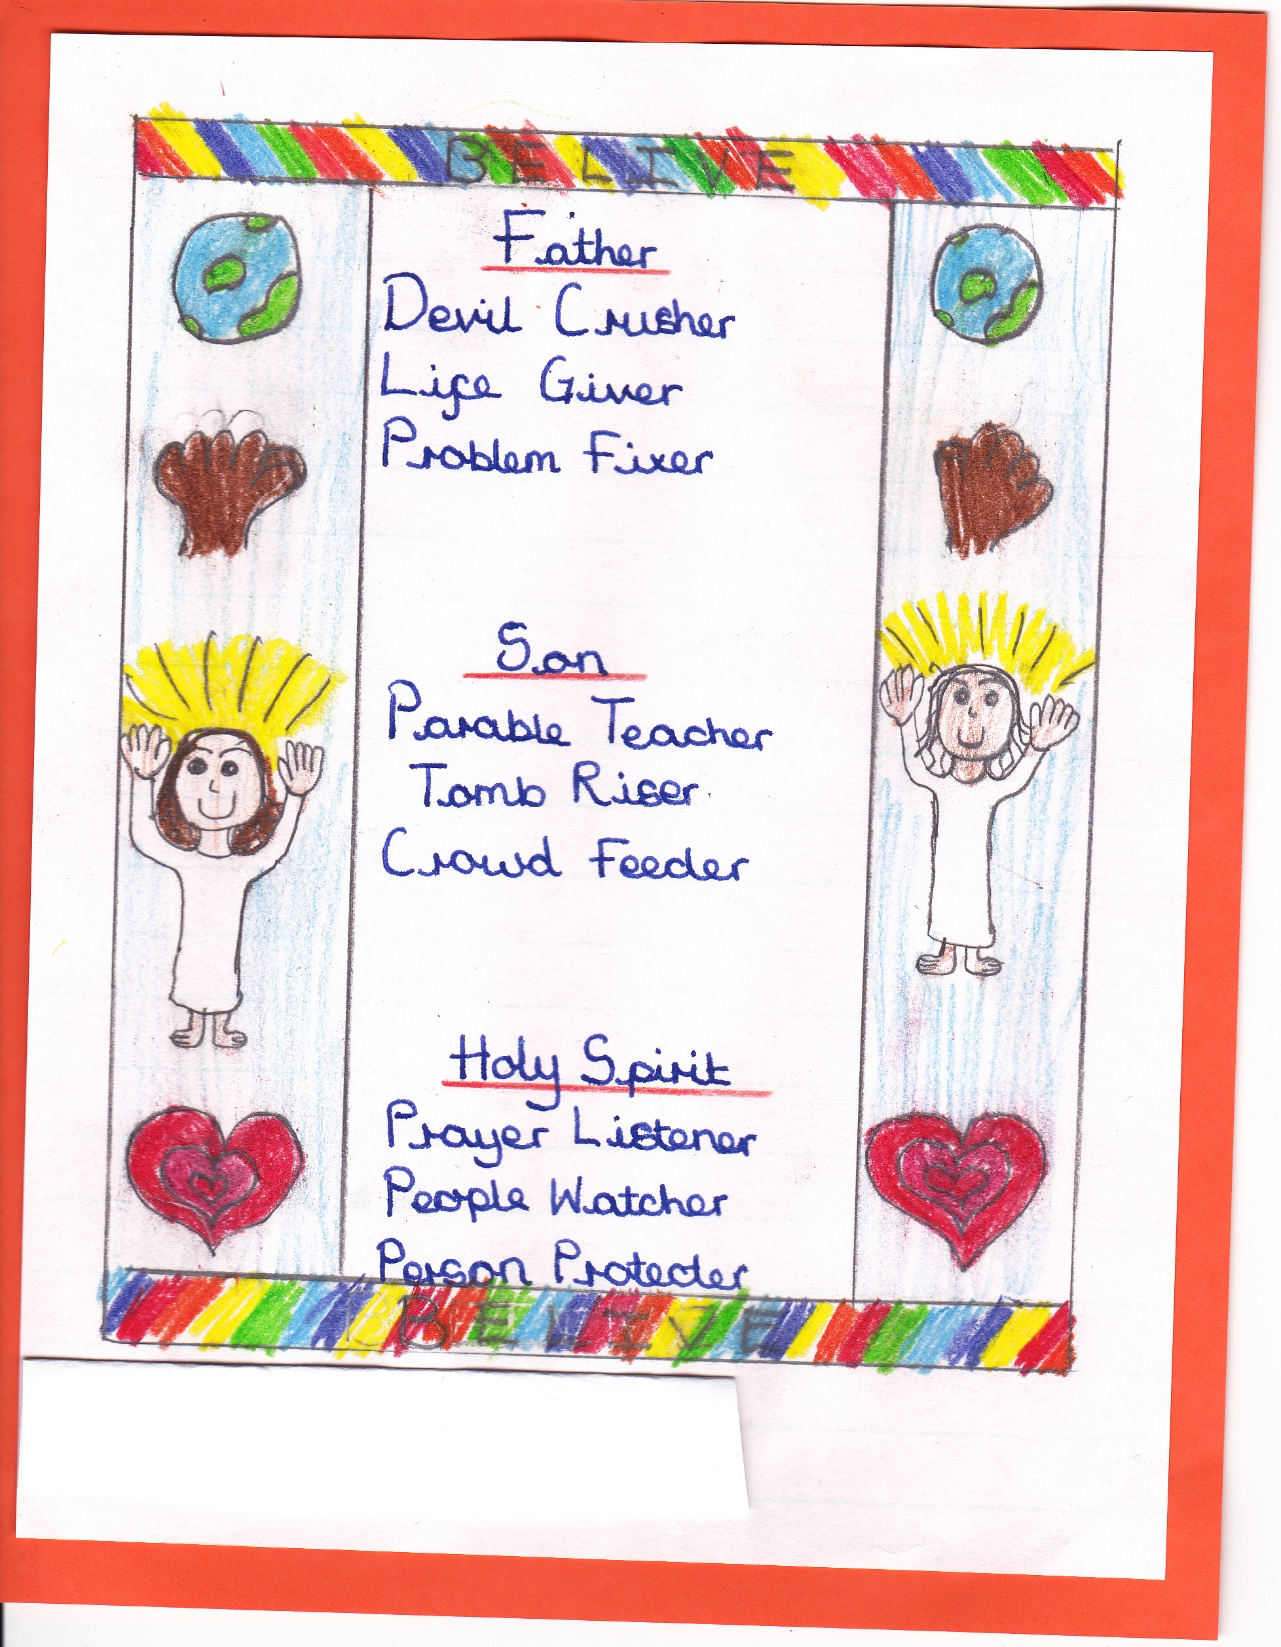 BELIVE
Father
Devil Crusher
Life Giver
Problem Fixer
Son
Parable Teacher
Tomb Riser
Crowd Feeder
Holy Spirit
Prayer Listener
People Watcher
Person Protecter
BELIVE